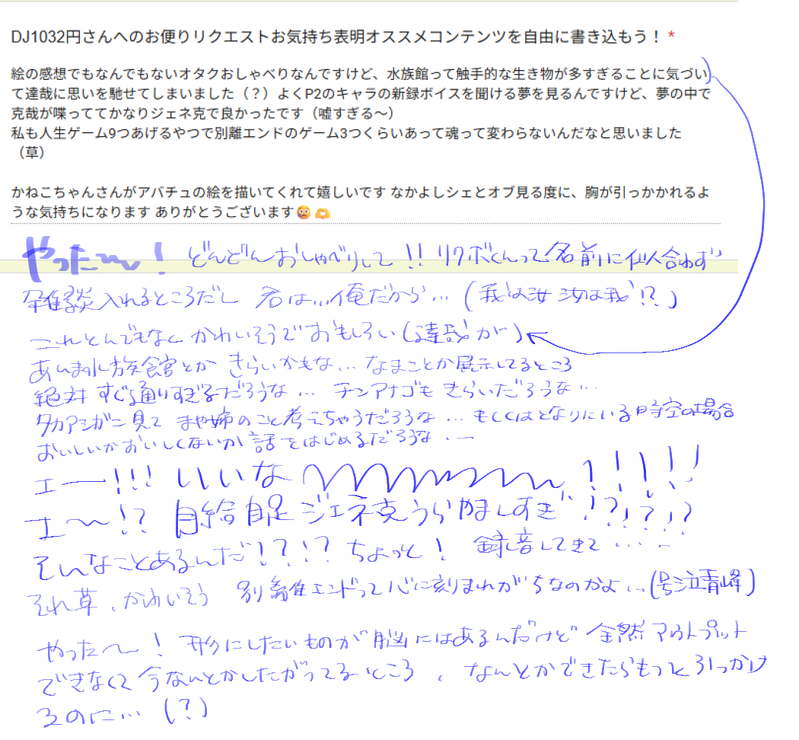 DJ1032円さんへのお便りリクエストお気持ち表明オススメコンテンツを自由に書き込もう！ *
絵の感想でもなんでもないオタクおしゃべりなんですけど、水族館って触手的な生き物が多すぎることに気づい
て達哉に思いを馳せてしまいました（？）よくP2のキャラの新録ボイスを聞ける夢を見るんですけど、夢の中で
克哉が喋っててかなりジェネ克で良かったです（嘘すぎる〜）
私も人生ゲーム9つあげるやつで別離エンドのゲーム3つくらいあって魂って変わらないんだなと思いました
（草）
かねこちゃんさんがアバチュの絵を描いてくれて嬉しいです なかよしシェとオブ見る度に、胸が引っかかれるよ
うな気持ちになります ありがとうございます😭🫶
やった〜！ どんどんおしゃべりして!! リクボくんって名前に似合わず
雑談入れるところだし 君は…俺だから…（我は汝 汝は我!?）
これとんでもなく かわいそうでおもしろい（達哉が）
あんまし水族館とか きらいかもな… なまことか展示してるところ
絶対 すぐ通りすぎるだろうな… チンアナゴもきらいだろうな…
タカアシガニ見て まや姉のこと考えちゃうだろうな… もしくはとなりにいる時空の場合
おいしいかおいしくないか 話をはじめるだろうな…
エー!!! いいな !!!!!
エ〜!? 自給自足 ジェネ克うらやましすぎ!?!?!?
そんなことあるんだ!?!? ちょっと！ 録音してきて…
それ草、かわいそう 別離エンドって心に刻まれがちなのかよ…（号泣青峰）
やった〜！ 形にしたいものが脳にはあるんだけど 全然アウトプット
できなくて 今なんとかしたがってるところ、なんとかできたらもっと引っかけ
るのに…（？）